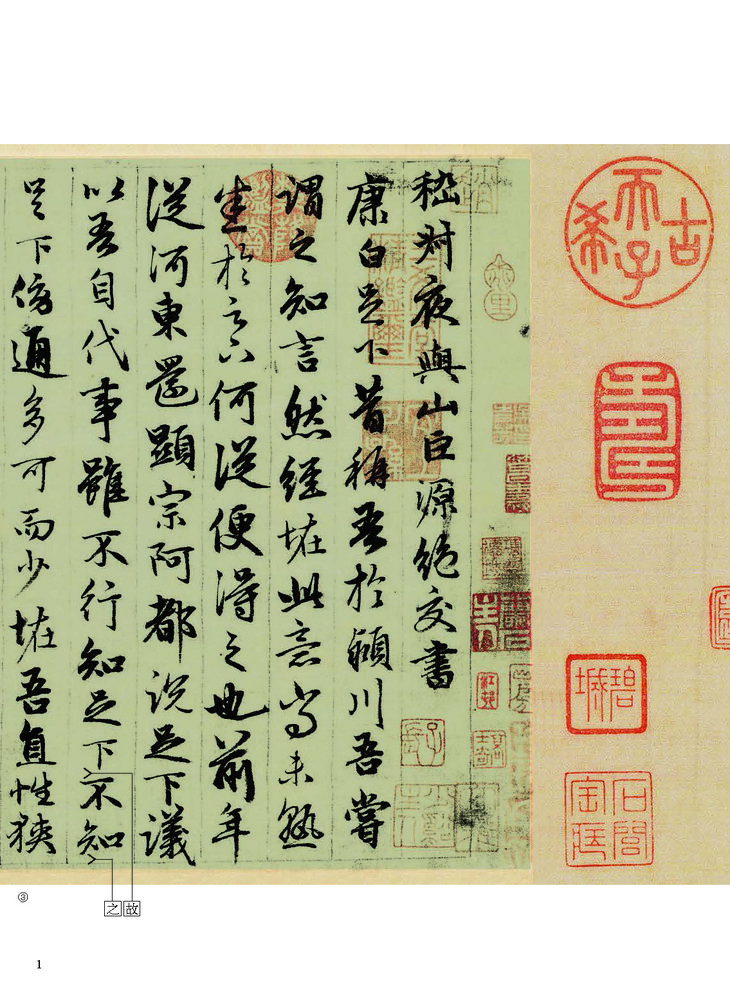 古希天子
壽
嵇叔夜與山巨源絶交書
康白足下昔稱吾於潁川吾嘗
謂之知言然經怪此意尚未熟
悉於足下何從便得之也前年
從河東還顯宗阿都說足下議
以吾自代事雖不行知足下不知
足下傍通多可而少怪吾直性狹
③
故
之
1